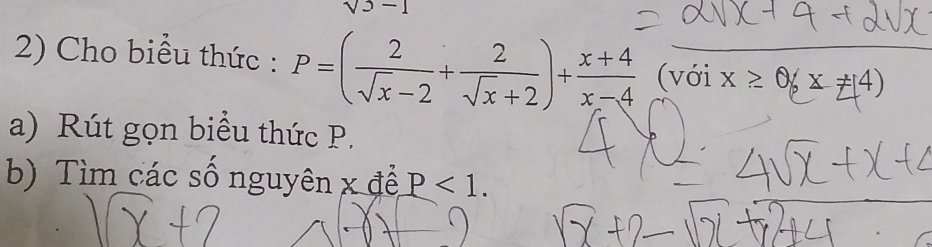 √3 - 1
= 2√x + 4 + 2√x
2) Cho biểu thức : P = (2/(√x - 2) + 2/(√x + 2)) + (x + 4)/(x - 4) (với x ≥ 0, x ≠ 4)
a) Rút gọn biểu thức P.
4√x + x + 4
b) Tìm các số nguyên x để P < 1.
√x + 2